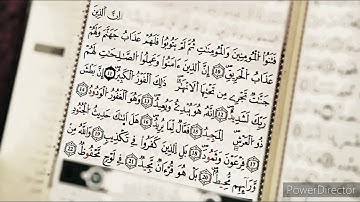 إِنَّ الَّذِينَ
فَتَنُوا۟ ٱلْمُؤْمِنِينَ وَٱلْمُؤْمِنَٰتِ ثُمَّ لَمْ يَتُوبُوا۟ فَلَهُمْ عَذَابُ جَهَنَّمَ وَلَهُمْ
عَذَابُ ٱلْحَرِيقِ ١٠ إِنَّ ٱلَّذِينَ ءَامَنُوا۟ وَعَمِلُوا۟ ٱلصَّٰلِحَٰتِ لَهُمْ
جَنَّٰتٌ تَجْرِى مِن تَحْتِهَا ٱلْأَنْهَٰرُ ذَٰلِكَ ٱلْفَوْزُ ٱلْكَبِيرُ ١١ إِنَّ بَطْشَ
رَبِّكَ لَشَدِيدٌ ١٢ إِنَّهُۥ هُوَ يُبْدِئُ وَيُعِيدُ ١٣ وَهُوَ ٱلْغَفُورُ ٱلْوَدُودُ ١٤
ذُو ٱلْعَرْشِ ٱلْمَجِيدُ ١٥ فَعَّالٌ لِّمَا يُرِيدُ ١٦ هَلْ أَتَىٰكَ حَدِيثُ ٱلْجُنُودِ
١٧ فِرْعَوْنَ وَثَمُودَ ١٨ بَلِ ٱلَّذِينَ كَفَرُوا۟ فِى تَكْذِيبٍ ١٩ وَٱللَّهُ مِن
وَرَآئِهِم مُّحِيطٌۢ ٢٠ بَلْ هُوَ قُرْءَانٌ مَّجِيدٌ ٢١ فِى لَوْحٍ مَّحْفُوظٍۭ ٢٢
PowerDirector